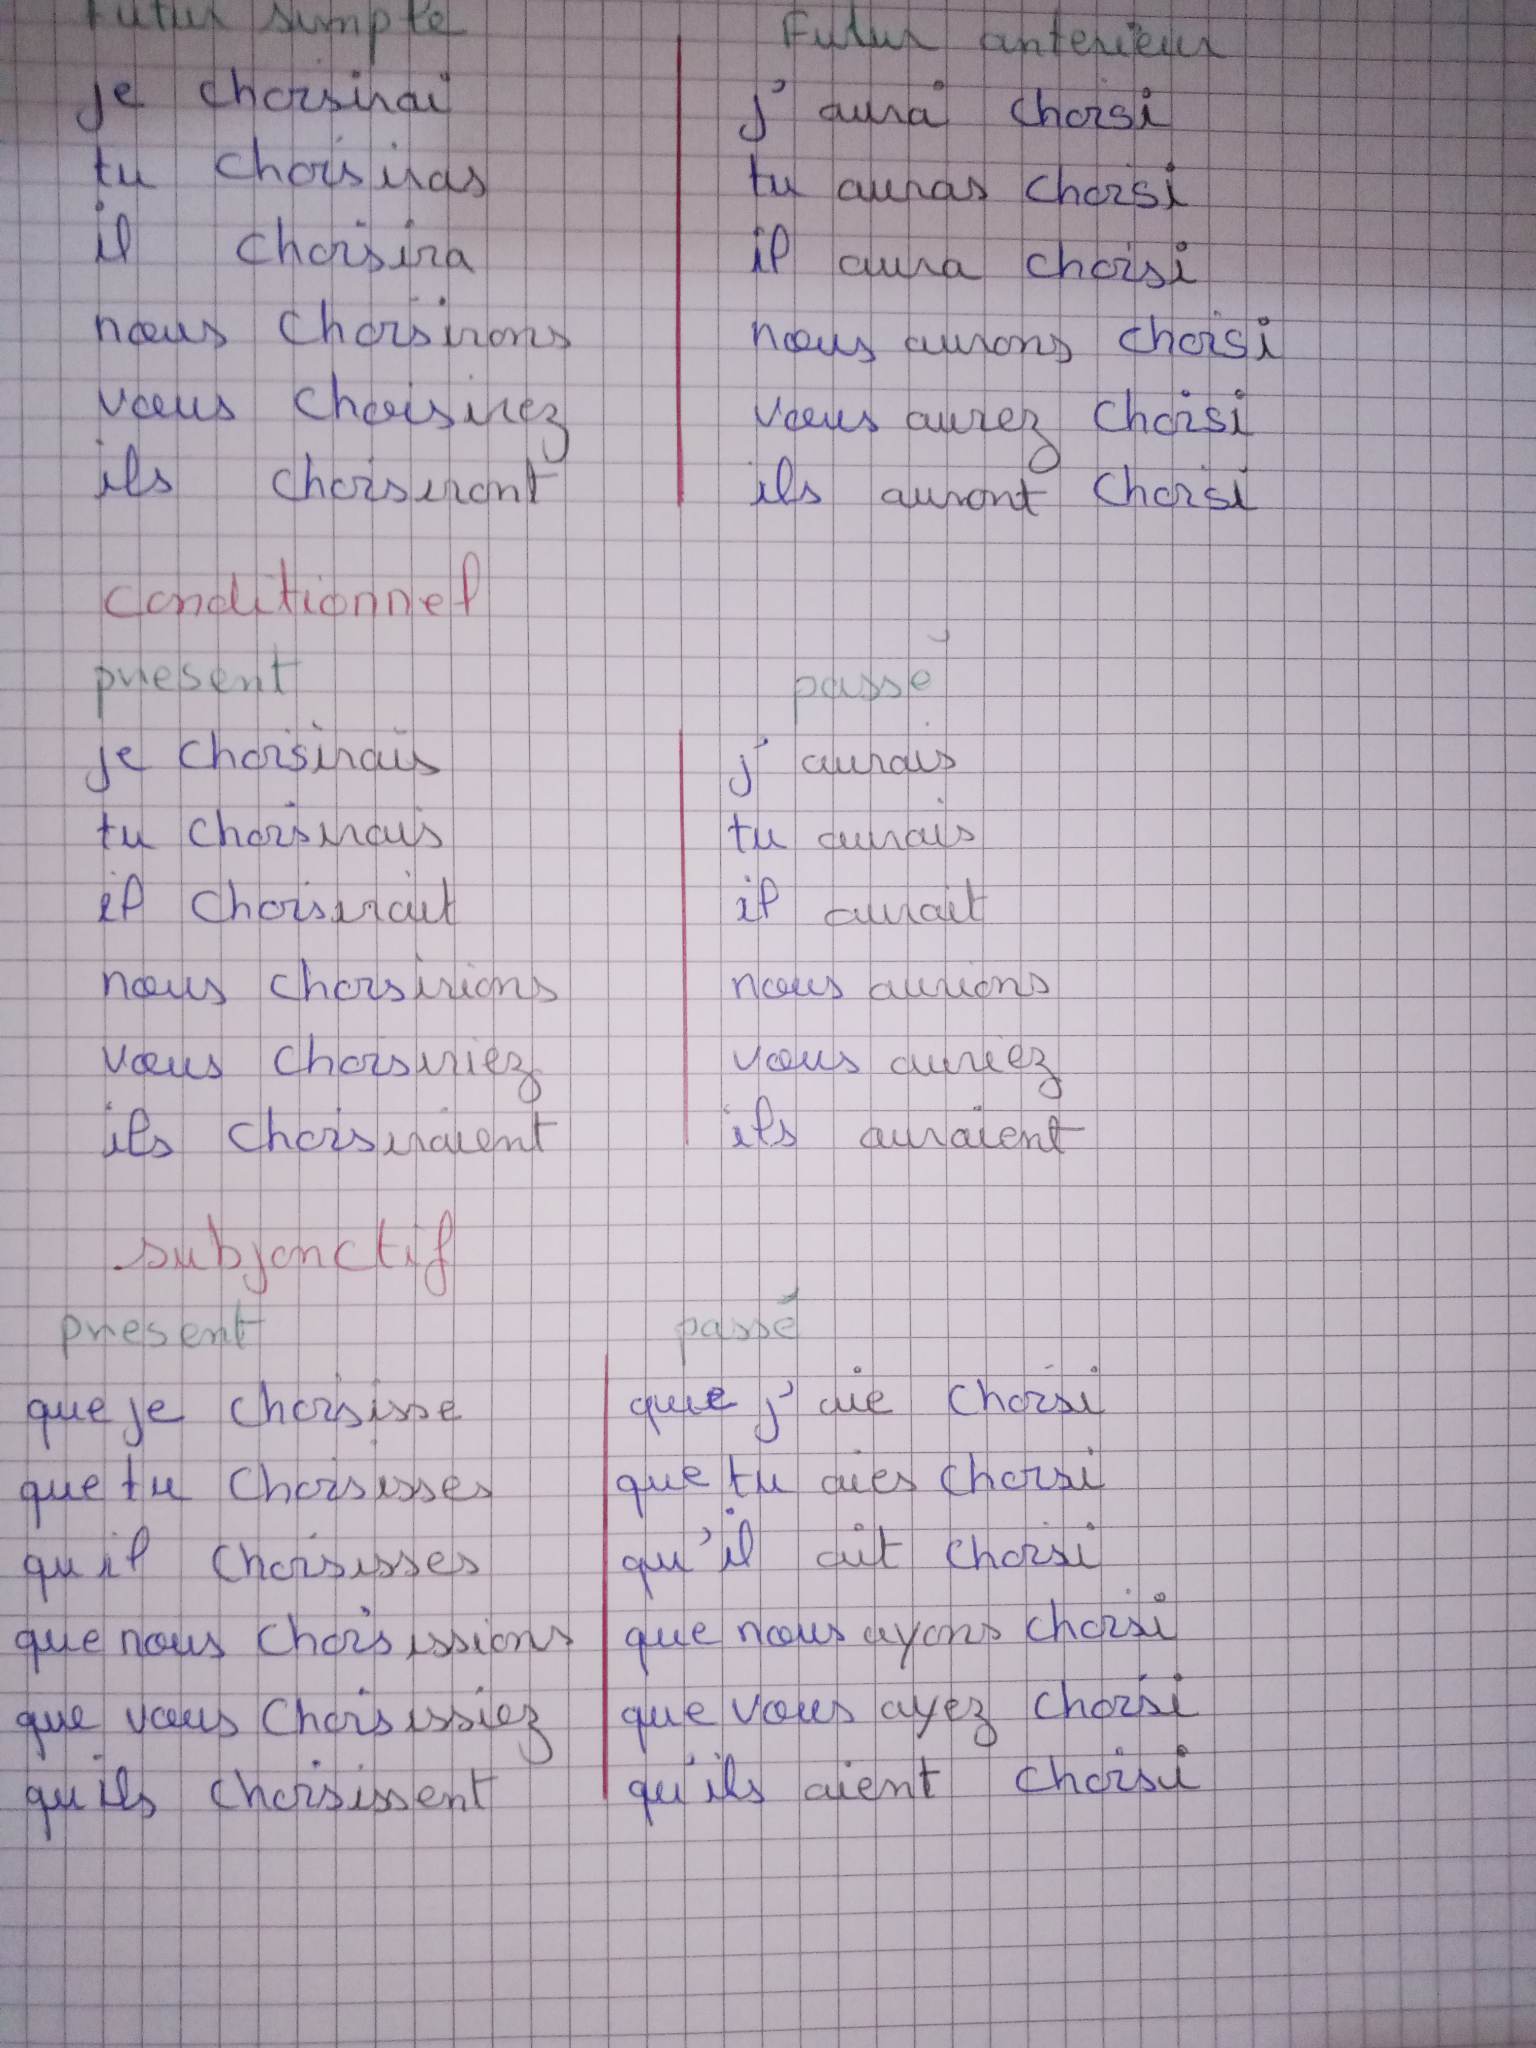 Futur simple
je choisirai
tu choisiras
il choisira
nous choisirons
vous choisirez
ils choisiront
Futur anterieur
j'aurai choisi
tu auras choisi
il aura choisi
nous aurons choisi
vous aurez choisi
ils auront choisi
conditionnel
present
je choisirais
tu choisirais
il choisirait
nous choisirions
vous choisiriez
ils choisiraient
passé
j'aurais
tu aurais
il aurait
nous aurions
vous auriez
ils auraient
subjonctif
present
que je choisisse
que tu choisisses
qu il choisisses
que nous choisissions
que vous choisissiez
qu'ils choisissent
passé
que j'aie choisi
que tu aies choisi
qu'il ait choisi
que nous ayons choisi
que vous ayez choisi
qu'ils aient choisi